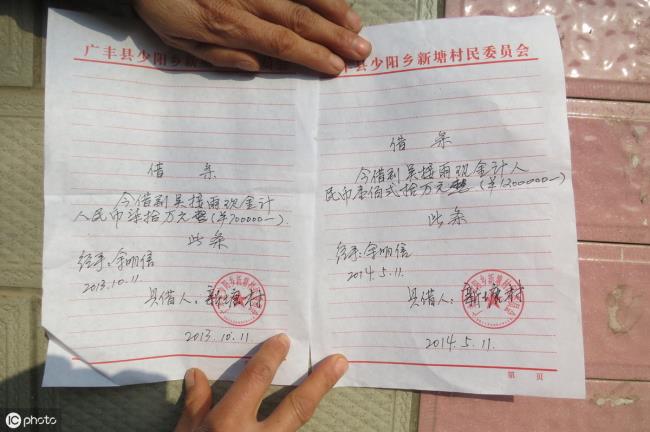 广丰县少阳乡新塘村民委员会
借条
今借到吴接雨现金计
人民币柒拾万元整(￥700000—).
此条
经手:余明信
2013.10.11
具借人:新塘村
2013.10.11
县少阳乡新塘村民委员会
借条
今借到吴接雨现金计人
民币壹佰弍拾万元整(￥1200000—)
此条
经手:余明信
2014.5.11.
具借人:新塘村
2014.5.11.
第 页
iC photo